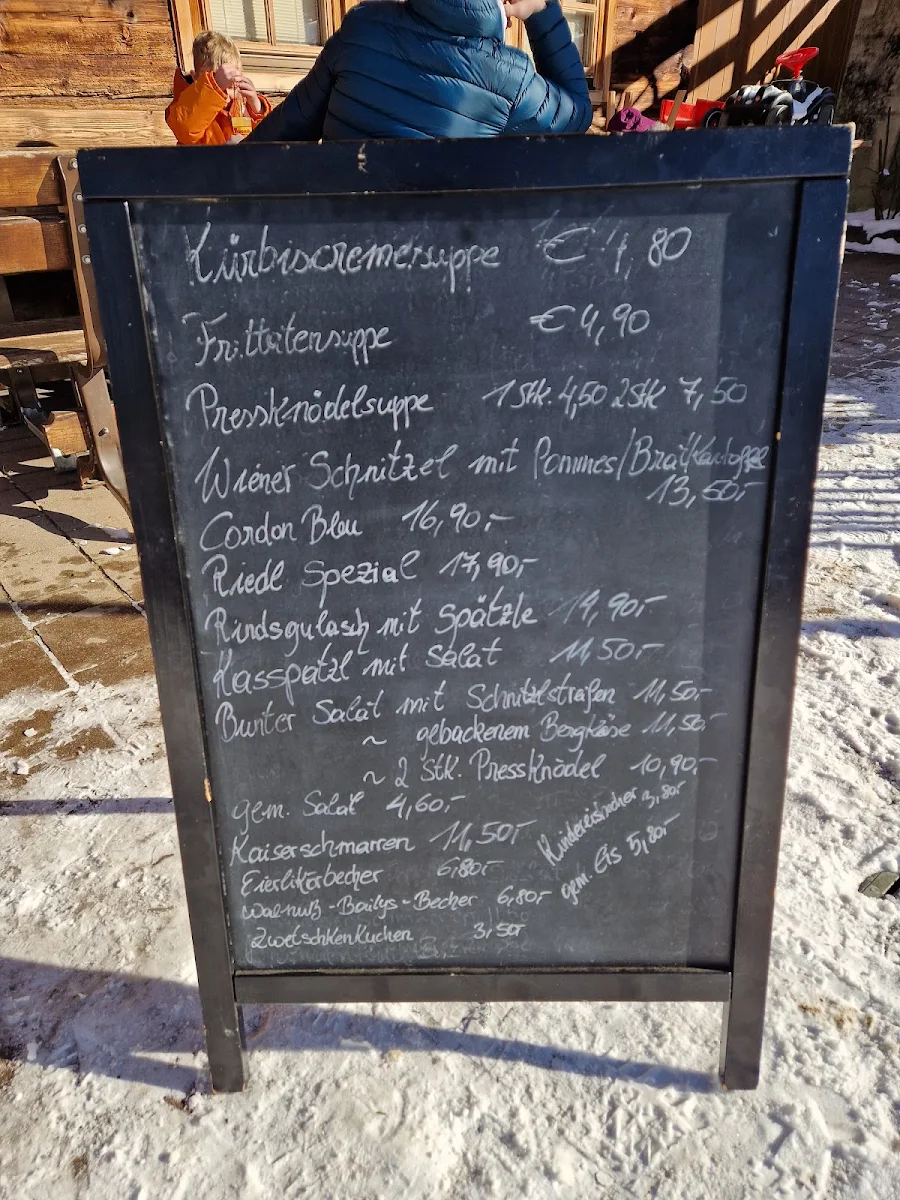 Kürbiscremesuppe € 4,80
Frittatensuppe € 4,90
Pressknödelsuppe 1 Stk. 4,50 2 Stk 7,50
Wiener Schnitzel mit Pommes/Bratkartoffel
13,50,-
Cordon Bleu 16,90,-
Riedl Spezial 17,90,-
Rindsgulasch mit Spätzle 14,90,-
Kasspatzl mit Salat 11,50,-
Bunter Salat mit Schnitzlstreifen 11,50,-
~ gebackenem Bergkäse 11,50,-
~ 2 Stk. Pressknödel 10,90,-
gem. Salat 4,60,-
Kaiserschmarren 11,50,-
Kindereisbecher 3,80,-
Eierlikörbecher 6,80,-
gem. Eis 5,80,-
Walnuß-Bailys-Becher 6,80,-
Zwetschkenkuchen 3,50,-